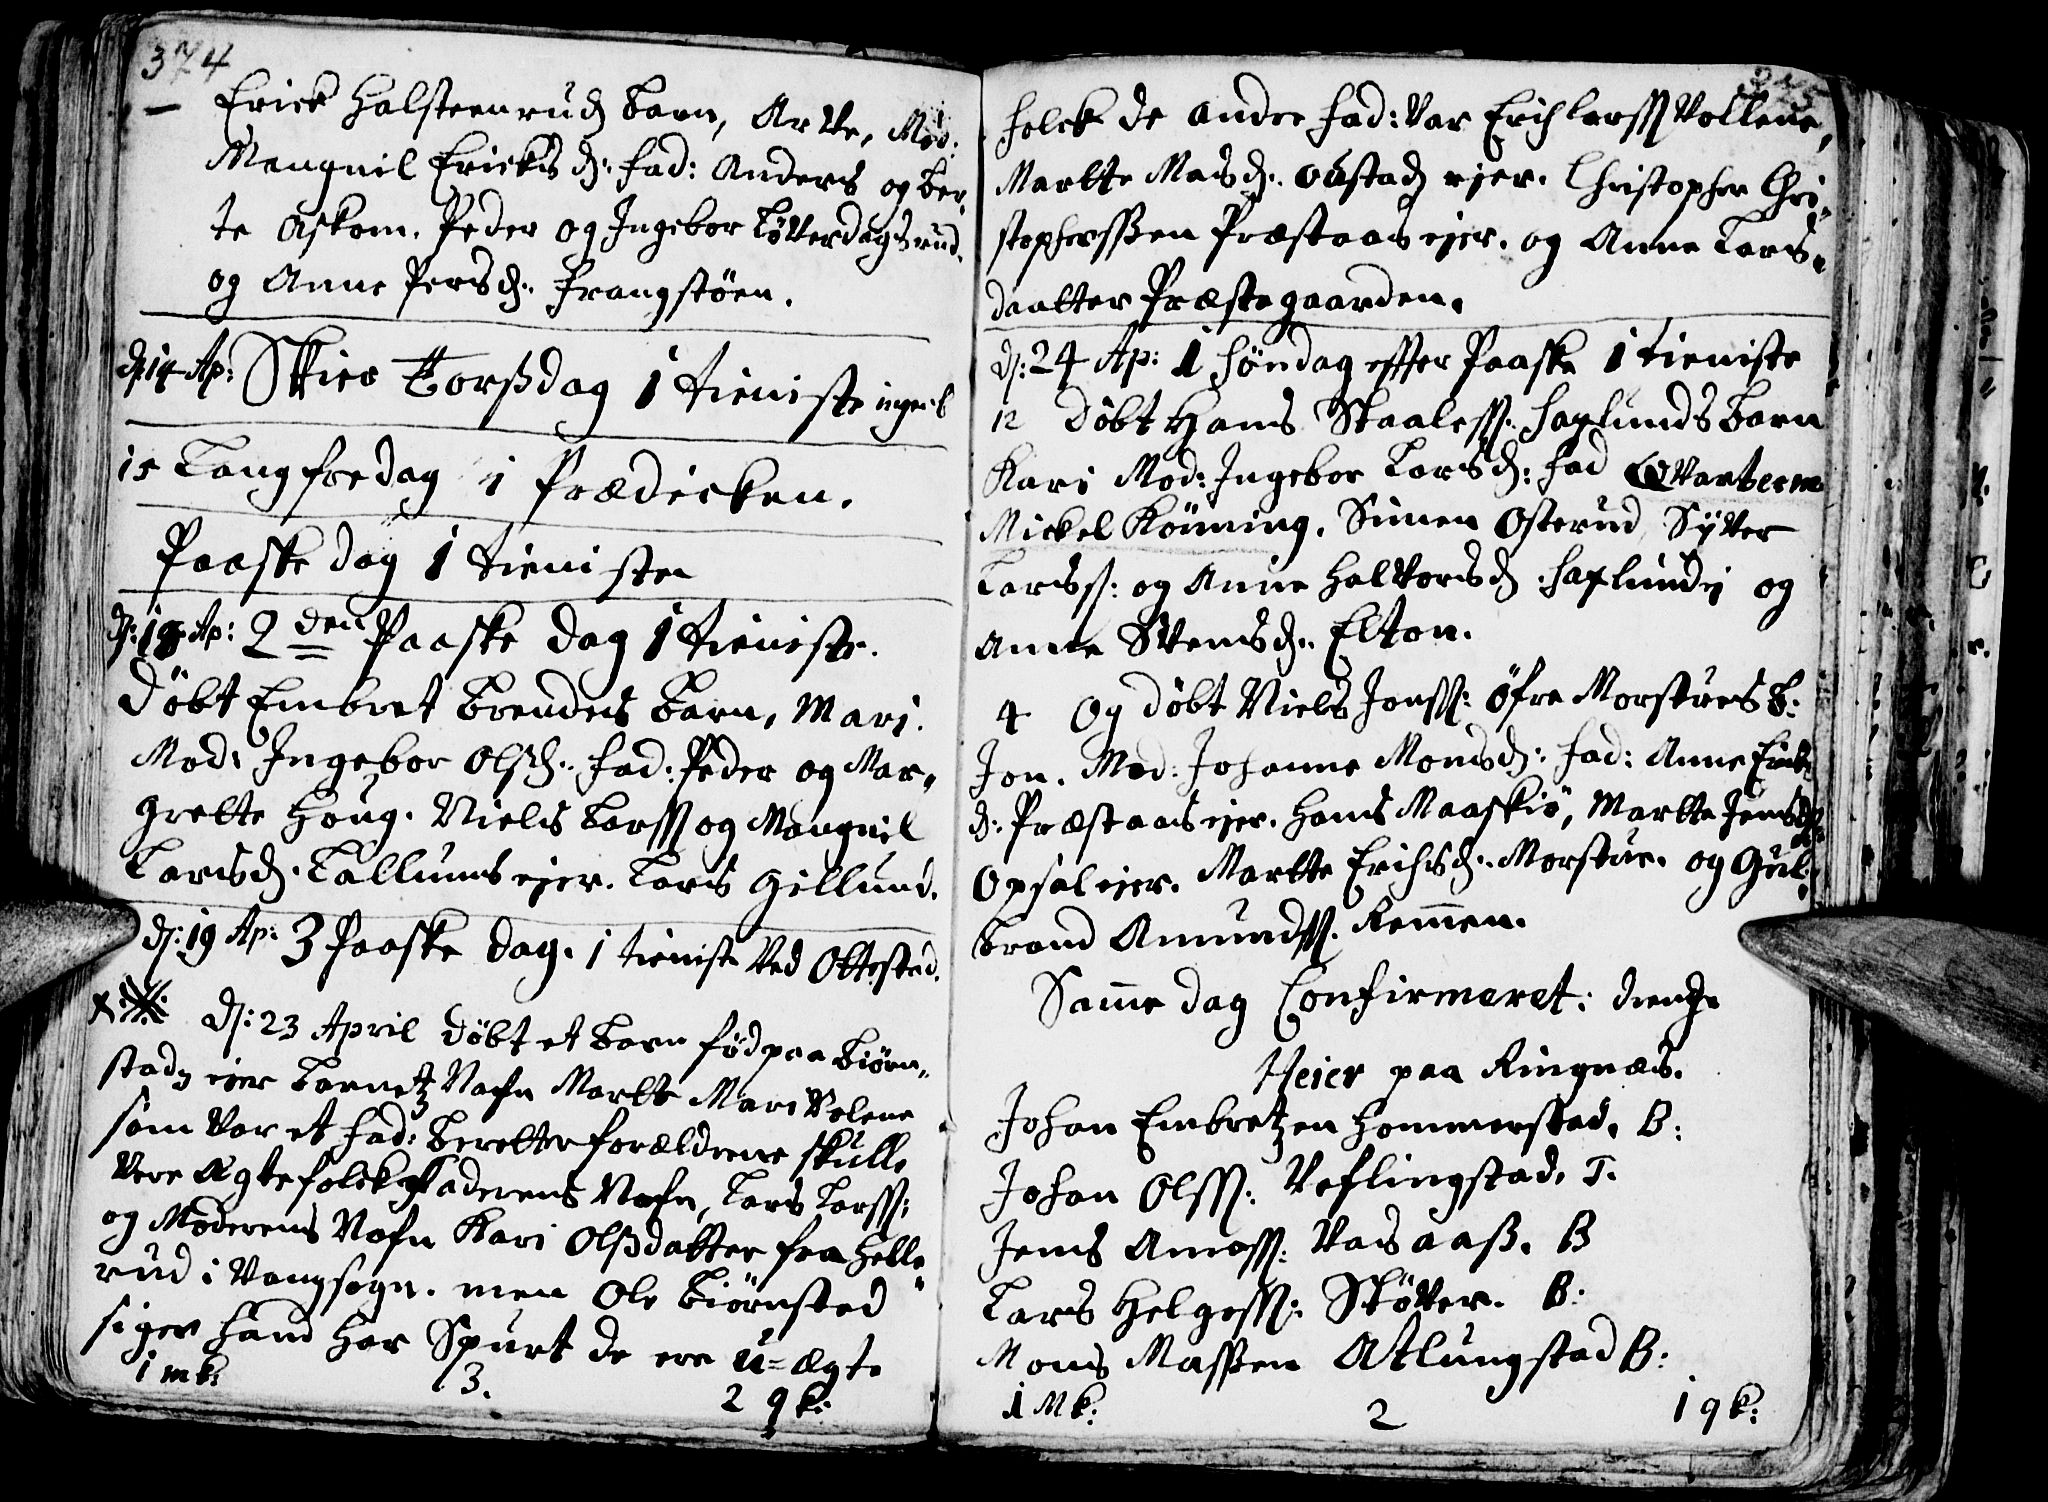 374
Erick Halsteenrudz barn, Arve, Mod:
Mangnil Ericks d: fad: Anders og Ber-
te Askom. Peder og Ingebor Løverdagsrud.
og Anne Persd: Frangstøen.
d: 14 Ap: Skier Torßdag 1 tieniste
15 Langfredag 1 Prædicken.
Paaske dag 1 tienisten
d: 18 Ap: 2den Paaske dag 1 tieniste.
Døbt Embret Brendes barn, Mari.
Mod: Ingebor Olsd: fad: Peder og Mar-
grette Houg. Niels Larss og Mangnil
Larsd. Tallums ejer. Lars Gillund.
d: 19 Ap: 3 Paaske dag. 1 tieniste ved Ottestad.
d: 23 April døbt et barn fød paa Biørn-
stadz ejer barnetz Nafn Martte Mari Volene
som var et fad: beretter forældrene skulle
vere Ægtefolck Faderens Nafn, Lars Larss:
og Moderens Nafn Kari Olßdatter fra Helle-
rud i Vangsogn. men Ole Biørnsted
siger hand har Spurt de ere u=ægte
1 mk: 3. 2 qk:
375
folck de andre fad: var Erich Larss Vollene,
Martte Madsd: obstad ejer. Christopher Chri-
stopherssen Præstaas ejer. og Anne Lars-
daatter Præstegaarden.
d: 24 Ap: 1 Søndag effter Paaske 1 tieniste
12 Døbt Hans Staaless. Haplunds barn
Kari Mod: Ingebor Larsd: fad Qvarterm
Mickel Kønning. Simen Osterud, Syver
Larss: og Anne Halvorsd Haplundej og
Anne Svensd: Elton.
4 Og døbt Niels Jonss: øfre Morstues B:
Jon. Mod: Johanne Monsd: fad: Anne Embr
d: Præstaas ejer. Hans Maaskiø, Martte Jensd:
Opsal ejer. Martte Erichsd: Morstue. og Gul-
brand Amundss. Remmen.
Samme dag Confirmeret:
Meier paa Ringnæs.
Johan Embretzen Hommerstad. B:
Johan Olss: Veflingstad. T.
Jens Amoss: Vasaaß. B
Lars Helgess: Skøver. B:
Mons Maßen Atlungstad B:
1 Mk: 2 1 qk: